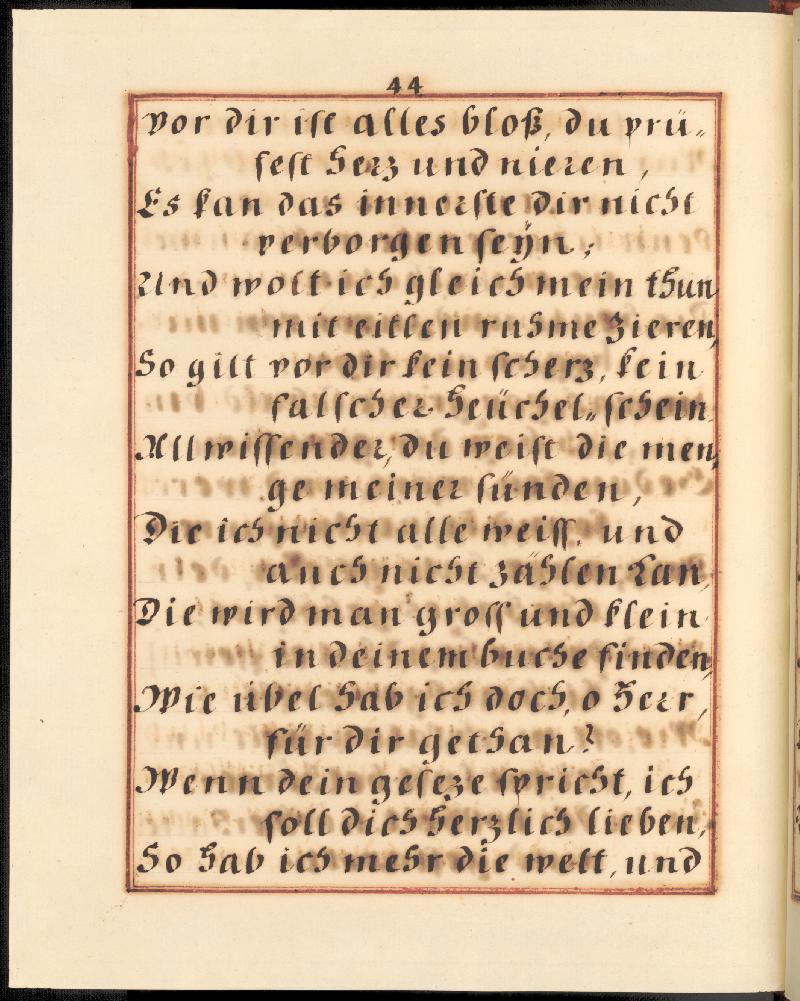 44
Vor dir ist alles bloß, du prü-
fest herz und nieren,
Es kan das innerste dir nicht
verborgen seÿn;
Und wolt ich gleich mein thun
mit eitlen ruhme zieren,
So gilt vor dir kein scherz, kein
falscher heüchel„schein
Allwissender, du weist die men,
ge meiner sünden,
Die ich nicht alle weiss, und
auch nicht zählen kan,
Die wird man gross und klein
in deinem buche finden,
Wie übel hab ich doch, o herr,
für dir gethan?
Wenn dein geseze spricht, ich
soll dich herzlich lieben,
So hab ich mehr die welt, und